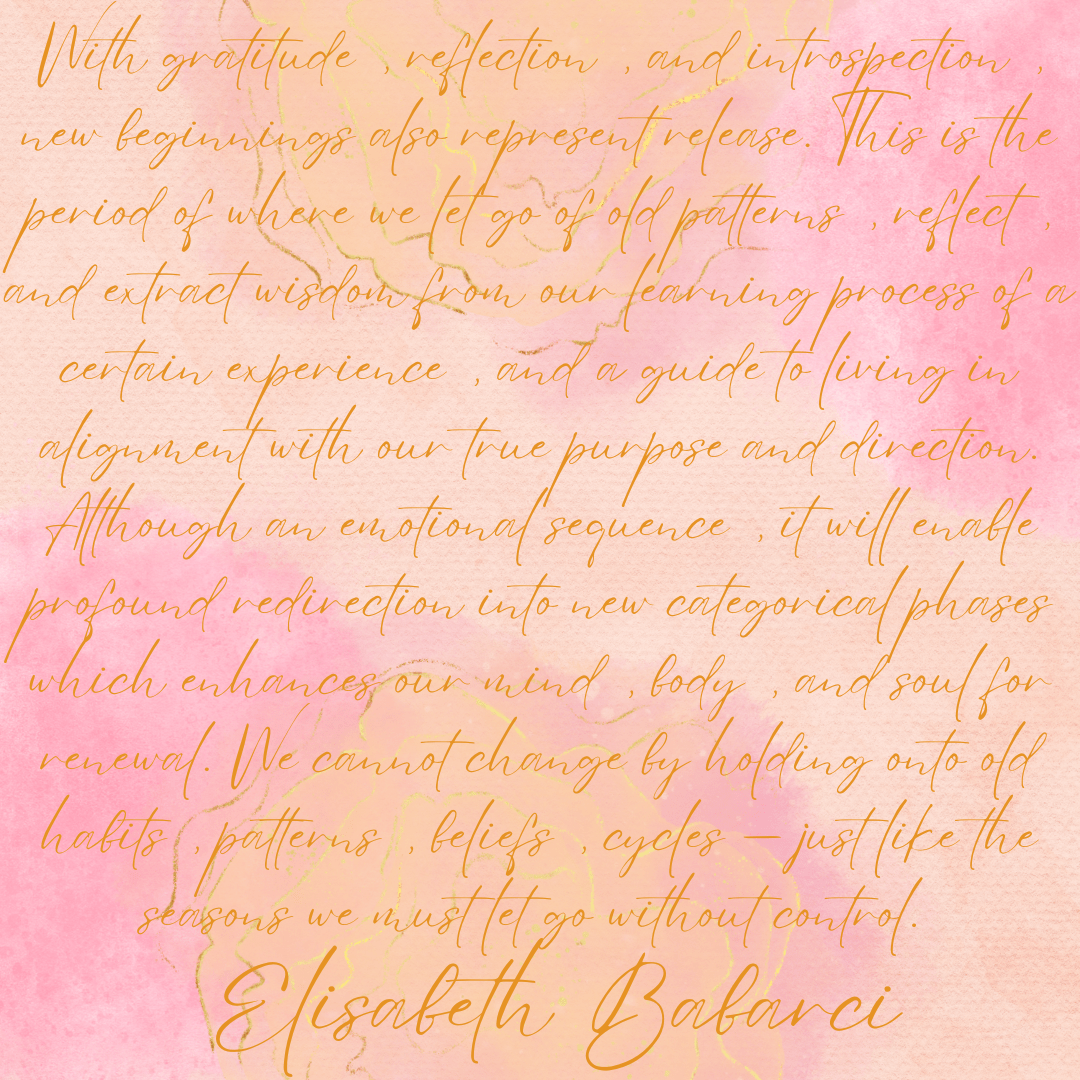 With gratitude , reflection , and introspection ,
new beginnings also represent release. This is the
period of where we let go of old patterns , reflect ,
and extract wisdom from our learning process of a
certain experience , and a guide to living in
alignment with our true purpose and direction.
Although an emotional sequence , it will enable
profound redirection into new categorical phases
which enhances our mind , body , and soul for
renewal. We cannot change by holding onto old
habits , patterns , beliefs , cycles – just like the
seasons we must let go without control.
Elisabeth Babarci